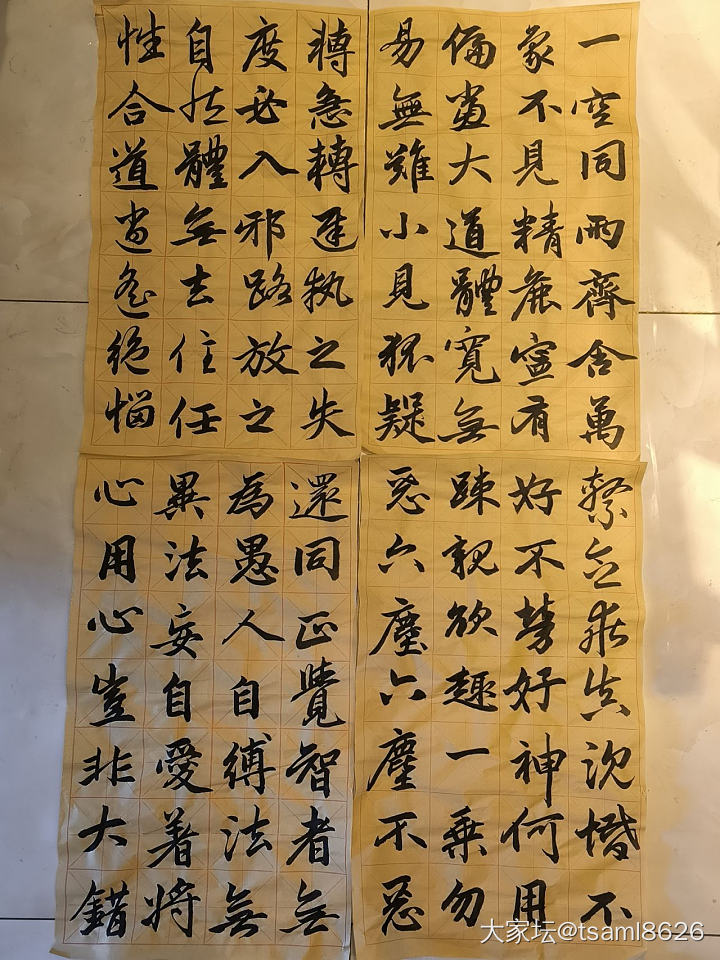 一空同兩齊含萬
象不見精麁寧有
偏黨大道體寬無
易無難小見狐疑
轉急轉遲執之失
度必入邪路放之
自然體無去住任
性合道逍遙絕惱
繫念乖真沉惛不
好不勞好神何用
踈親欲趣一乘勿
惡六塵六塵不惡
還同正覺智者無
為愚人自縛法無
異法妄自愛著將
心用心豈非大錯
大家坛@tsaml8626